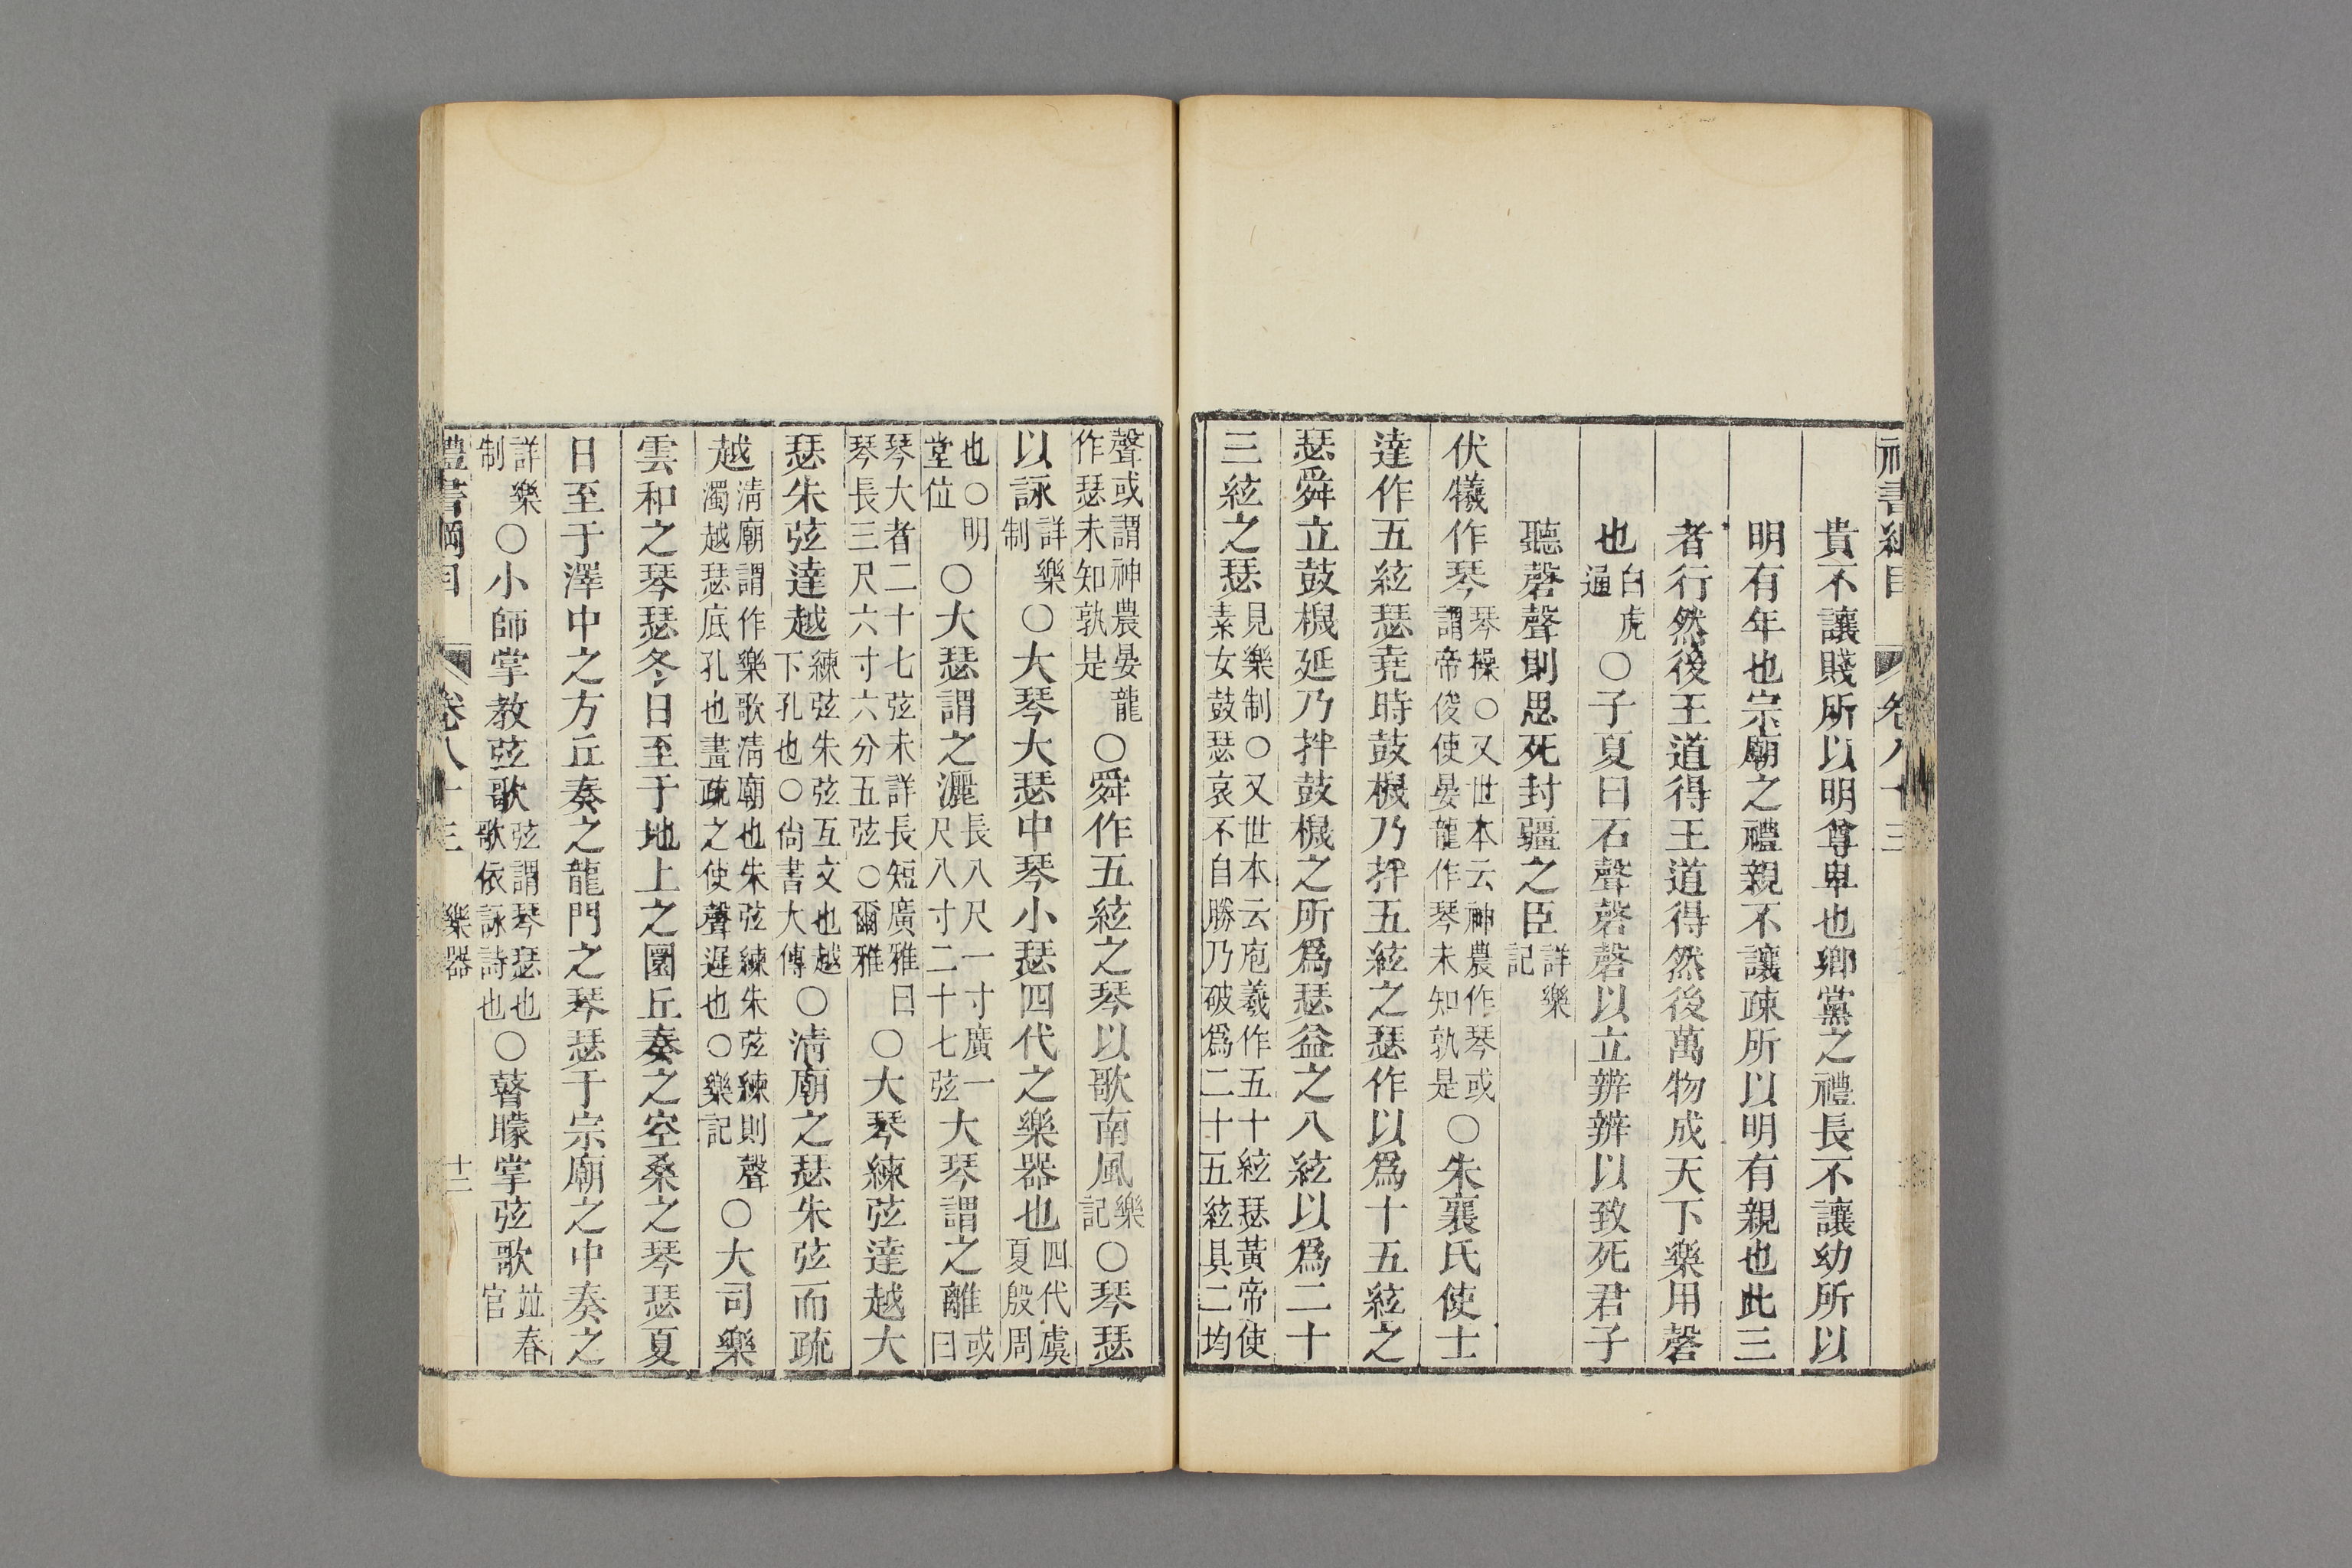 禮書綱目 卷八十三
貴不讓賤所以明尊卑也鄉黨之禮長不讓幼所以
明有年也宗廟之禮親不讓疎所以明有親也此三
者行然後王道得王道得然後萬物成天下樂用磬
也白虎通○子夏曰石聲磬磬以立辨辨以致死君子
聽磬聲則思死封疆之臣詳樂記
伏犧作琴琴操○又世本云神農作琴或謂帝俊使晏龍作琴未知孰是○朱襄氏使士
達作五絃瑟堯時鼓㮸乃拌五絃之瑟作以爲十五絃之
瑟舜立鼓㮸延乃拌鼓㮸之所爲瑟益之八絃以爲二十
三絃之瑟見樂制○又世本云庖羲作五十絃瑟黃帝使素女鼓瑟哀不自勝乃破爲二十五絃具二均
聲或謂神農晏龍作瑟未知孰是○舜作五絃之琴以歌南風樂記○琴瑟
以詠詳樂制○大琴大瑟中琴小瑟四代之樂器也四代虞夏殷周
也○明堂位○大瑟謂之灑長八尺一寸廣一尺八寸二十七弦大琴謂之離或曰
琴大者二十七弦未詳長短廣雅曰琴長三尺六寸六分五弦○爾雅○大琴練弦達越大
瑟朱弦達越練弦朱弦互文也越下孔也○尙書大傳○淸廟之瑟朱弦而疏
越淸廟謂作樂歌淸廟也朱弦練朱弦練則聲濁越瑟底孔也畫疏之使聲遲也○樂記○大司樂
雲和之琴瑟冬日至于地上之圜丘奏之空桑之琴瑟夏
日至于澤中之方丘奏之龍門之琴瑟于宗廟之中奏之
詳樂制○小師掌敎弦歌弦謂琴瑟也歌依詠詩也○瞽矇掌弦歌竝春官
禮書綱目 卷八十三 樂器 十二